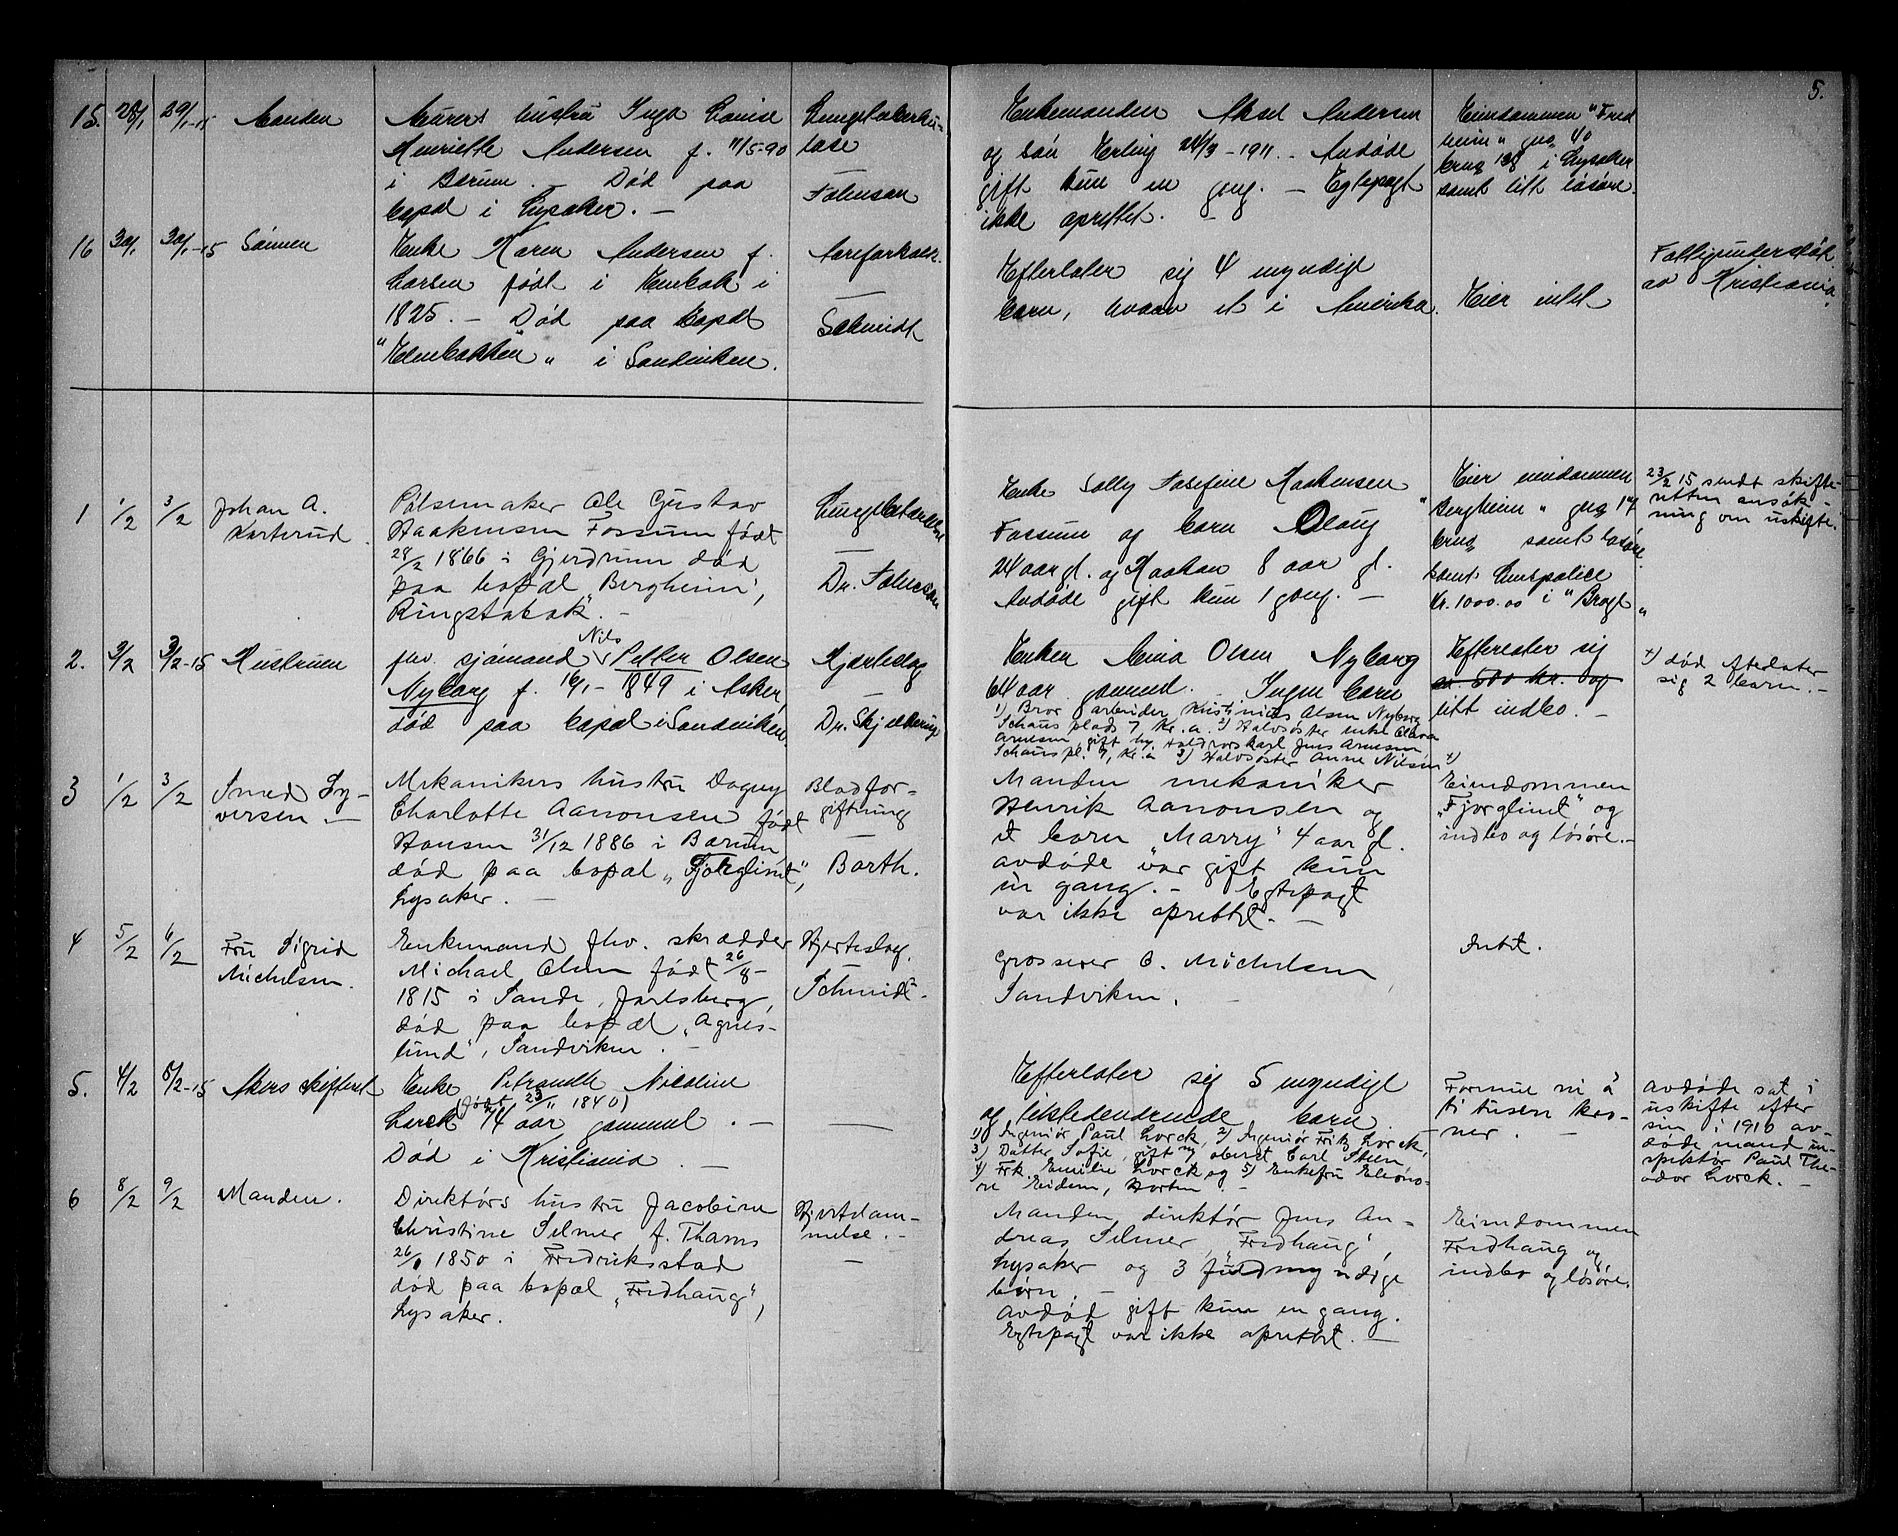 5.
15. 28/1 29/1-15 Manden
Murers hustru Inga Lovise
Henriette Andersen f. 11/5-90
i Bærum. – Død paa
bopæl i Lysaker. –
Lungetuberku-
lose
–
Johnson
Enkemanden Aksel Andersen
og søn Erling 24/3-1911. – Avdøde
gift kun en gang. – Egtepagt
ikke oprettet. –
Eiendommen "Fred
heim" gno 40
brug 128 i Lysaker
samt litt løsøre.
16 30/1 30/1-15 Sønnen
Enke Karen Andersen f.
Larsen født i Enebak i
1825. – Død paa bopæl
"Elvebakken" i Sandviken.
Aareforkalk.
–
Schmidt
Efterlater sig 4 myndige
barn, hvorav et i Amerika.
Eier intet
Fattigunderstøt
av Kristiania.
1 1/2 3/2 Johan A.
Karterud.
Pølsemaker Ole Gustav
Haakensen Fossum født
28/2 1866 i Gjerdrum død
paa bopæl "Bergheim",
Ringstabæk. –
Lungebetændelse
–
Dr. Johnson
Enke Solly Josefine Haakensen
Fossum og barn Olaug
24 aar gl. og Haakon 8 aar gl.
Avdøde gift kun 1 gang. –
Eier eiendommen
"Bergheim" gno 17
brug samt løsøre
samt livspolice
Kr. 1000.00 i "Brage"
23/2 15 sendt skifte-
retten ansøk-
ning om uskifte.
2. 3/2 3/2-15 Hustruen
Nils
fhv. sjømand Petter Olsen
Nyborg f. 16/1-1849 i Asker,
død paa bopæl i Sandviken.
Hjerteslag
–
Dr. Skjelderup
Enken Mina Olsen Nyborg
64 aar gammel. – Ingen barn
1) Bror arbeider Kristinius Olsen Nyborg
Schaus plads 7 Kr.a. 2) Halvsøster enke Clara
Arnesen, gift m. Jens Arnesen
Schaus pl. 7, Kr.a 3) Halvsøster Anne Nilsen +)
Efterlater sig
ca 500 kr. og
litt indbo. –
+) død efterlater
sig 2 barn. –
3 1/2 3/2 Smed Sy-
versen. –
Mekanikers hustru Dagny
Charlotte Aanonsen født
Hansen 31/12 1886 i Bærum
død paa bopæl "Fjorglimt",
Lysaker. –
Blodfor-
giftning
–
Barth.
Manden mekaniker
Henrik Aanonsen og
et barn "Marry" 4 aar gl.
avdøde var gift kun
en gang. – Egtepagt
var ikke oprettet. –
Eiendommen
"Fjorglimt" og
indbo og løsøre. –
4 5/2 6/2 Fru Sigrid
Michelsen.
Enkemand fhv. skrædder
Michael Olsen født 26/8-
1815 i Sande, Jarlsberg,
død paa bopæl "Agnes-
lund", Sandviken. –
Hjerteslag.
Schmidt.
Grosserer C. Michelsen
Sandviken. –
Intet.
5. 4/2 6/2-15 Akers skifteret
Enke Petrandte Nicoline
(født 23/11 1840)
Lorck 74 aar gammel. –
Død i Kristiania. –
–
Efterlater sig 5 myndige
og tilstedeværende barn.
1) Ingeniør Paul Lorck, 2) Ingeniør Fritz Lorck,
3) Datter Sofie, gift m/ oberst Carl Steen,
4) Frk. Emilie Lorck og 5) Enkefru Eleono-
re Eidem, Horten. –
Formue ni à
ti tusen kro-
ner. –
Avdøde sat i
uskifte efter
sin i 1910 av-
døde mand in-
spektør Paul The-
odor Lorck. –
6 8/2 9/2 Manden.
Direktørs hustru Jacobine
Christine Selmer f. Thams
1850 i Fredriksstad
død paa bopæl "Fredhaug",
Lysaker.
Hjertelam-
melse. –
–
Manden, direktør Jens An-
dreas Selmer, "Fredhaug",
Lysaker og 3 fuldmyndige
børn. –
Avdød gift kun en gang.
Egtepagt var ikke oprettet. –
Eiendommen
Fredhaug og
indbo og løsøre.